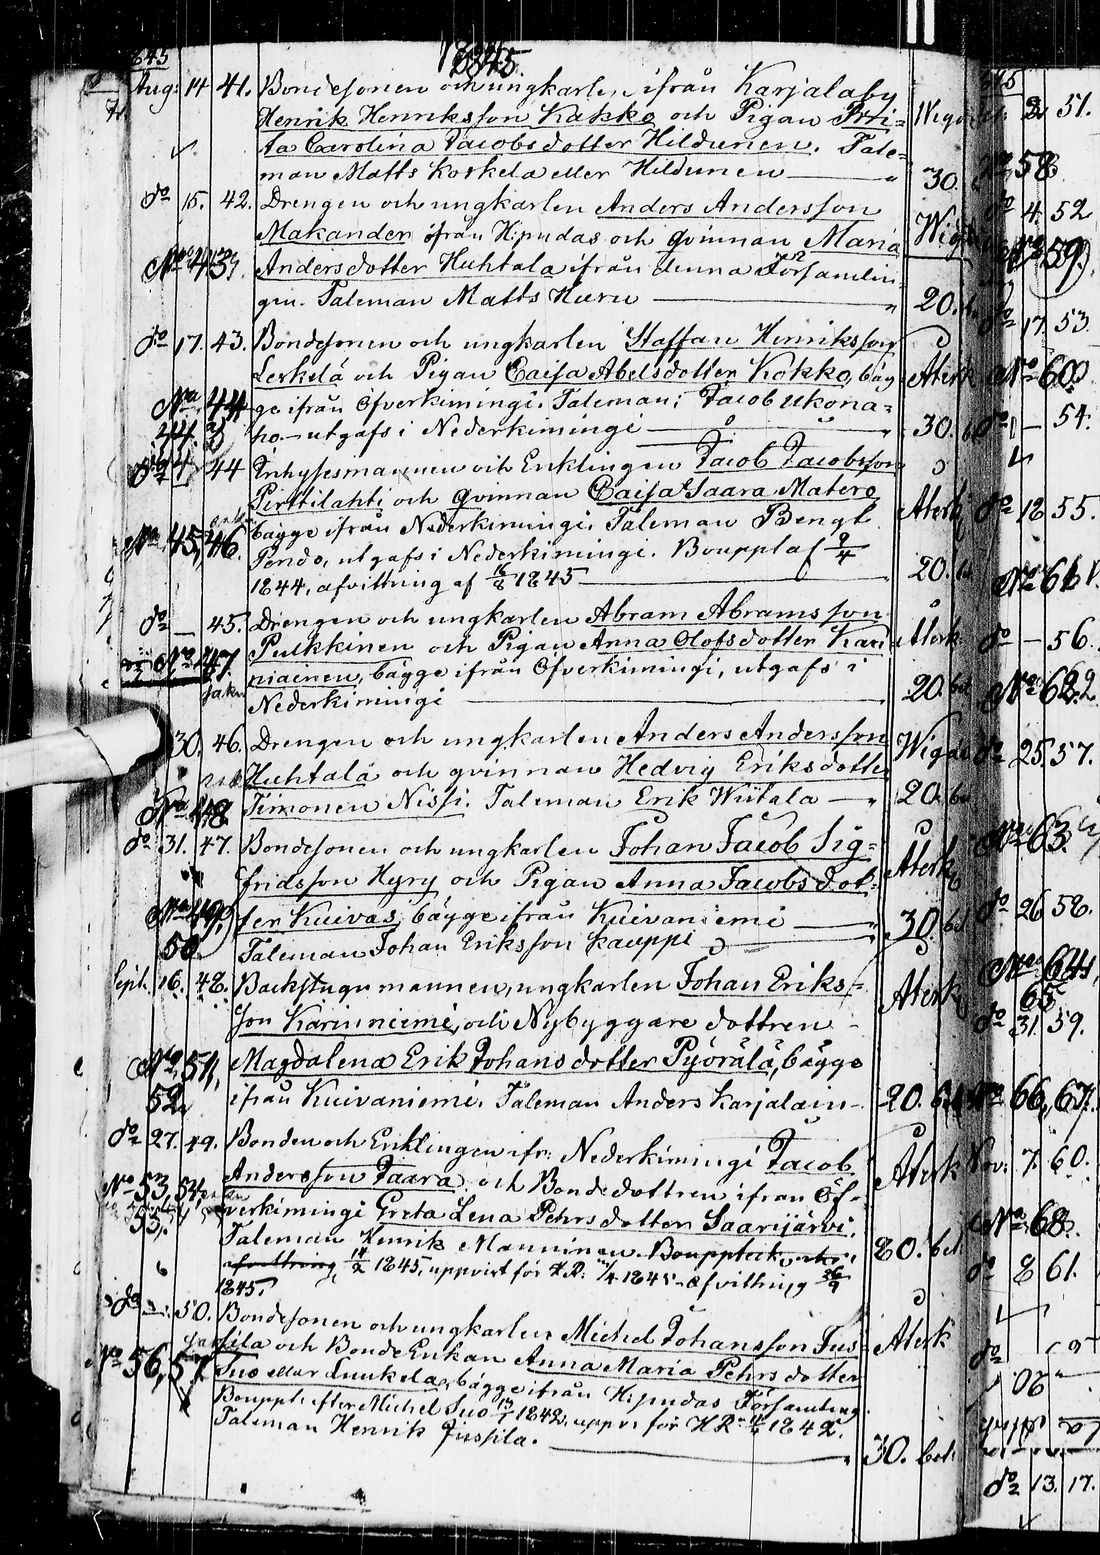 1845.
1845
Aug: 14 41. Bondesonen och ungkarlen ifrån Karjalaby
Henrik Henriksson Kakko och Pigan Prii= Wigde
ta Carolina Jacobsdotter Hildunen. Tale=
man Matts Koskela eller Hildunen 30.
do 15. 42. Drengen och ungkarlen Anders Andersson
Makander ifrån Hipudas och qvinnan Maria Wigde
No 43, Andersdotter Huhtala ifrån denna Församlin=
gen. Taleman Matts Huru 20.
do 17. 43. Bondesonen och ungkarlen Staffan Henriksson
Leskelä och Pigan Caisa Abelsdotter Kokko, båg= Aterk
No 44 ge ifrån Öfverkimingi. Taleman: Jacob Ukona=
ho – utgafs i Nederkimingi 30.
do 44 Inhysesmannen och Enklingen Jacob Jacobsson
Perttilahti och Qvinnan Caisa Saara Matero
No 45, 46. bägge ifrån Nederkimingi. Taleman Bengt Aterk
utgafs i Nederkimingi. Bouppt af 9/4
1844, afvittning af 1845 20. bet
do — 45. Drengen och ungkarlen Abram Abramsson
Pulkkinen och Pigan Anna Olofsdotter Kari Aterk
No 47. niainen, bägge ifrån Öfverkimingi, utgafs i
Nederkimingi 20. bet
30. 46. Drengen och ungkarlen Anders Andersson Wigde
Huhtala och qvinnan Hedvig Eriksdotter
No 48 Timonen Nissi. Taleman Erik Wiitala — 20. bet
do 31. 47. Bondesonen och ungkarlen Johan Jacob Sig=
fridsson Hyry och Pigan Anna Jacobsdot= Aterk
No 49, ter Kuivas, bägge ifrån Kuivaniemi 30. bet
50. Taleman Johan Eriksson Kauppi
Sept. 16. 48. Backstugumannen, ungkarlen Johan Eriks= Aterk
son Karinniemi, och Nybyggare dottren
No 51, Magdalena Erik Johansdotter Pyörälä, bägge
52. ifrån Kuivaniemi. Taleman Anders Karjalain 20. bet
do 27. 49. Bonden och Enklingen ifr. Nederkimingi Jacob Aterk
No 53, 54, Andersson Paara och Bondedottren ifrån Öf=
55. verkimingi Greta Lena Pehrsdotter Saarijärvi.
Taleman Henrik Manninen. Bouppteck 20. bet
afvittning, 14/2 1845, uppvist för H.R. 1845 – afvittning 26/9
1845.
do — 50. Bondesonen och ungkarlen Michel Johansson Jus= Aterk
No 56, 57. sila och Bonde Enkan Anna Maria Pehrsdotter
Suo eller Luukela, bägge ifrån Hipudas Församling.
Bouppt. efter Michel Suo 1842, uppv. för H.R. 1842.
Taleman Henrik Jussila. 30. bet
1845
2 51.
58
do 4. 52
No 59.
do 17. 53.
No 60
do — 54.
do 18 55.
No 61
do — 56.
No 62
do 25. 57.
No 63.
do 26 58.
No 64,
65
do 31. 59.
No 66, 67.
Nov: 7. 60.
No 68.
do 8 61.
do 13. 17.